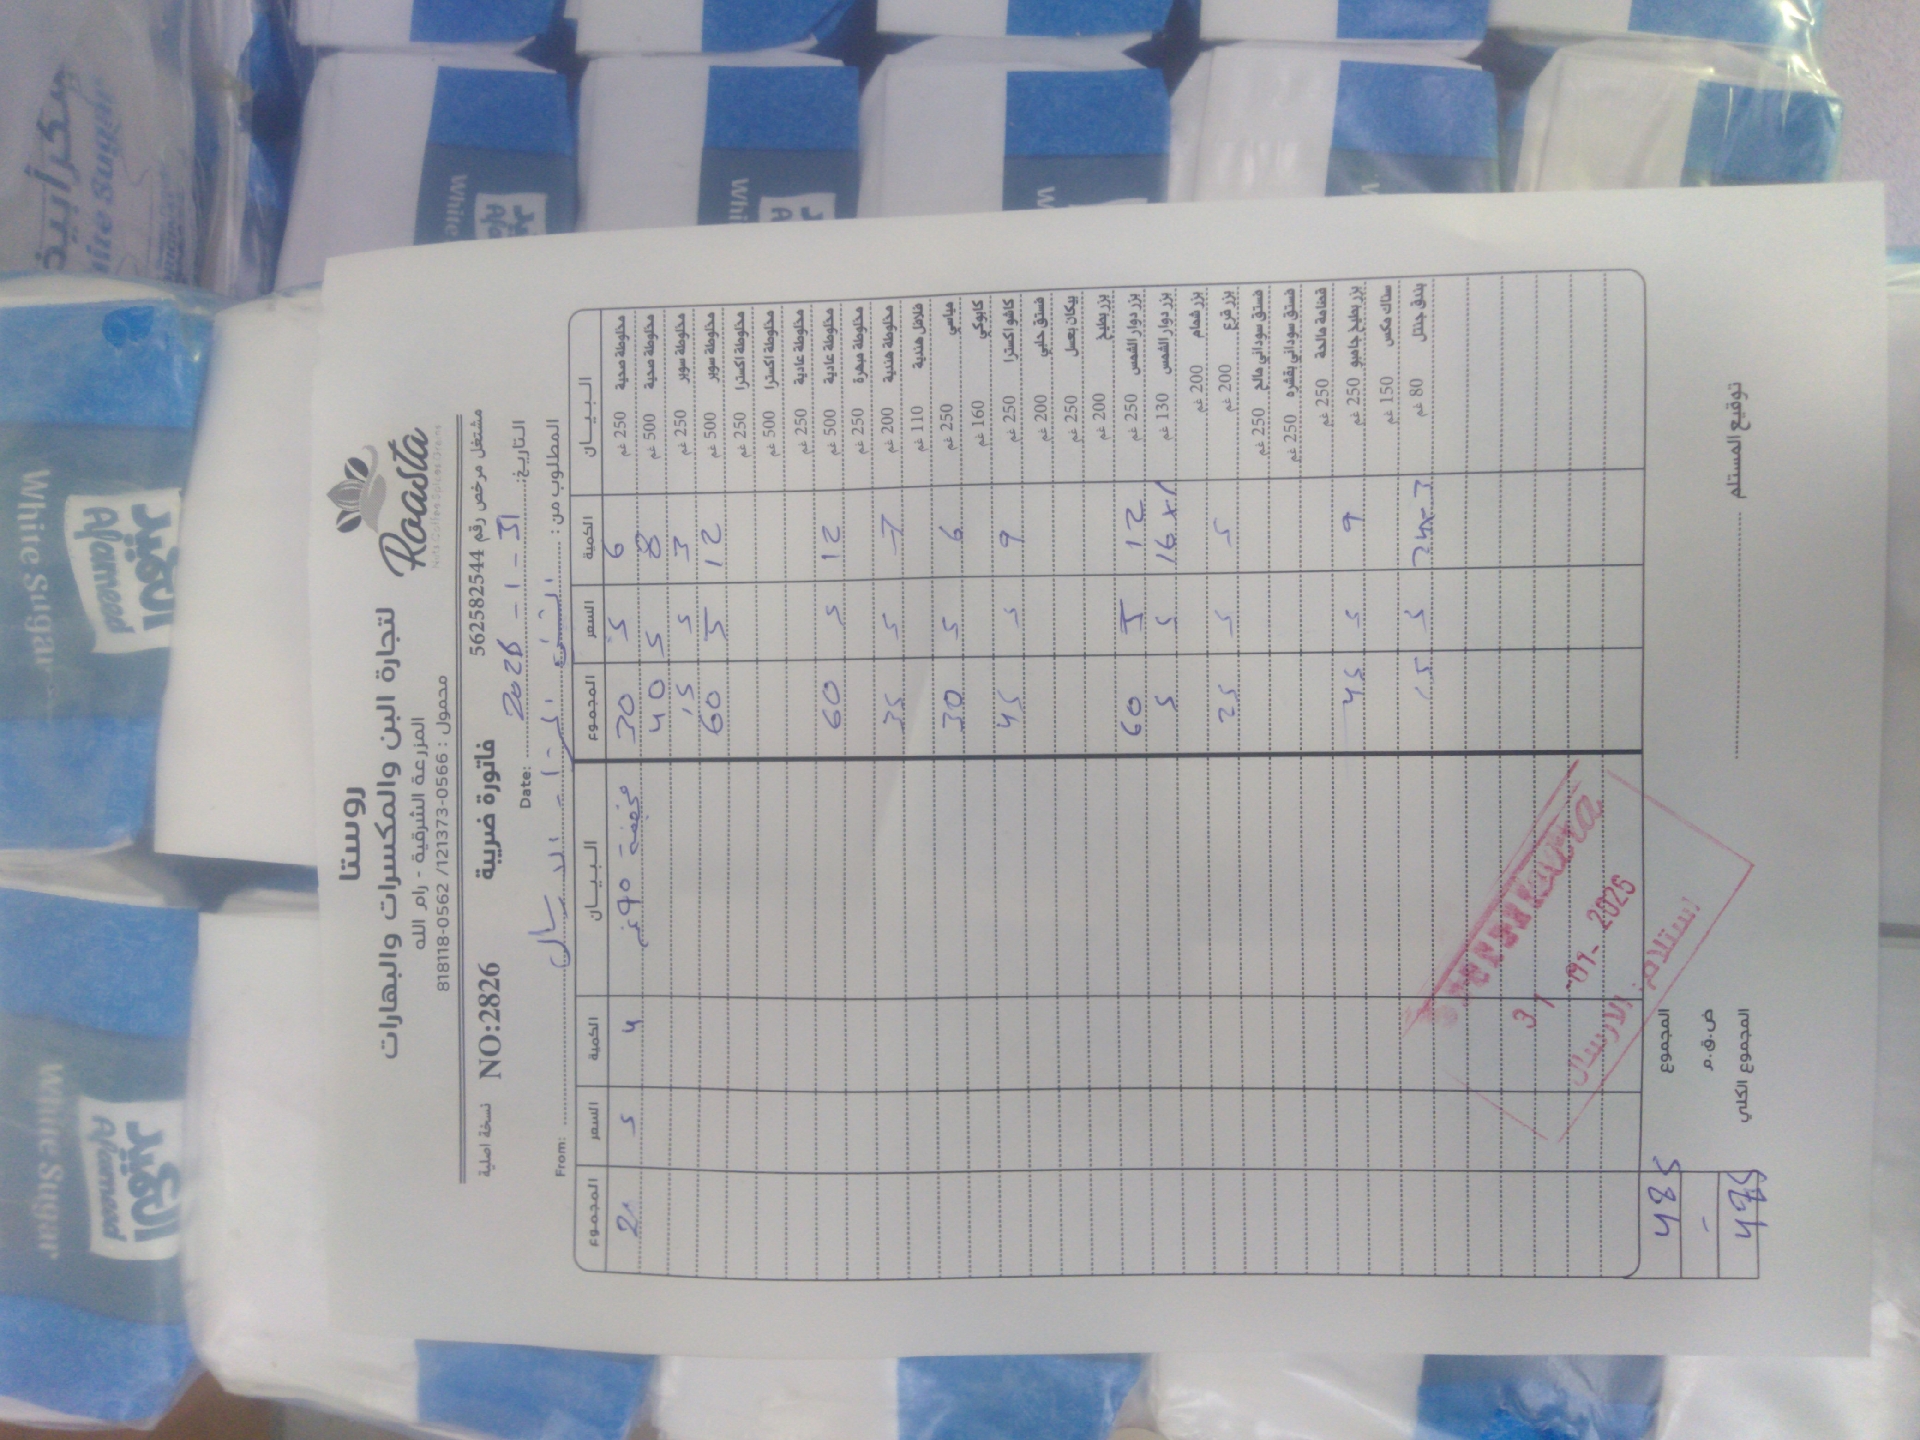 Roasta
Nuts Coffee Spices Dream
روستا
لتجارة البن والمكسرات والبهارات
المزرعة الشرقية - رام الله
محمول : 0566-121373/ 0562-818118
مشتغل مرخص رقم 562582544
فاتورة ضريبة
NO:2826
نسخة اصلية
التاريخ: 31 - 1 - 2026 Date:
المطلوب من : From:
البيــان الكمية السعر المجموع البيــان الكمية السعر المجموع
مخلوطة صحية 250 غم 6 5 30 90 غم 4 5 20
مخلوطة صحية 500 غم 8 5 40
مخلوطة سوبر 250 غم 3 5 15
مخلوطة سوبر 500 غم 12 5 60
مخلوطة اكسترا 250 غم
مخلوطة اكسترا 500 غم
مخلوطة عادية 250 غم
مخلوطة عادية 500 غم 12 5 60
مخلوطة مبهرة 250 غم
مخلوطة هندية 200 غم 7 5 35
فلافل هندية 110 غم
عباسي 250 غم 6 5 30
كابوكي 160 غم
كاشو اكسترا 250 غم 9 5 45
فستق حلبي 200 غم
بيكان بعسل 250 غم
بزر بطيخ 200 غم
بزر دوار الشمس 250 غم 12 5 60
بزر دوار الشمس 130 غم 16x1 5 5
بزر شمام 200 غم
بزر قرع 200 غم 5 5 25
فستق سوداني مالح 250 غم
فستق سوداني بقشره 250 غم
قضامة مالحة 250 غم
بزر بطيخ جامبو 250 غم 9 5 45
سناك مكس 150 غم
بندق جنتل 80 غم 24x3 5 15
المجموع 485
ض.ق.م -
المجموع الكلي 485
توقيع المستلم
31 -01- 2026
استلام: الارسال
White Sugar
الأفميد
Alameed
White Sugar
Alameed
White Sugar